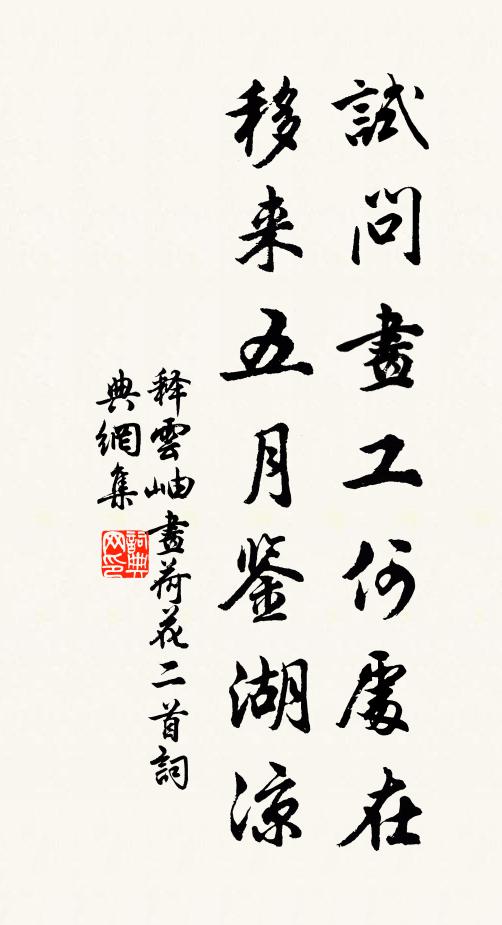 試問畫工何處在
移来五月鉴湖凉
释雲岫畫荷花二首詞
典網集
詞典
网印